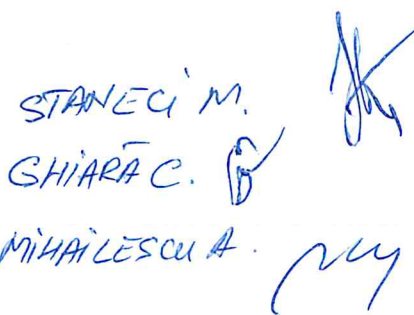 STANECI M.
GHIARĂ C.
MIHAILESCU A.